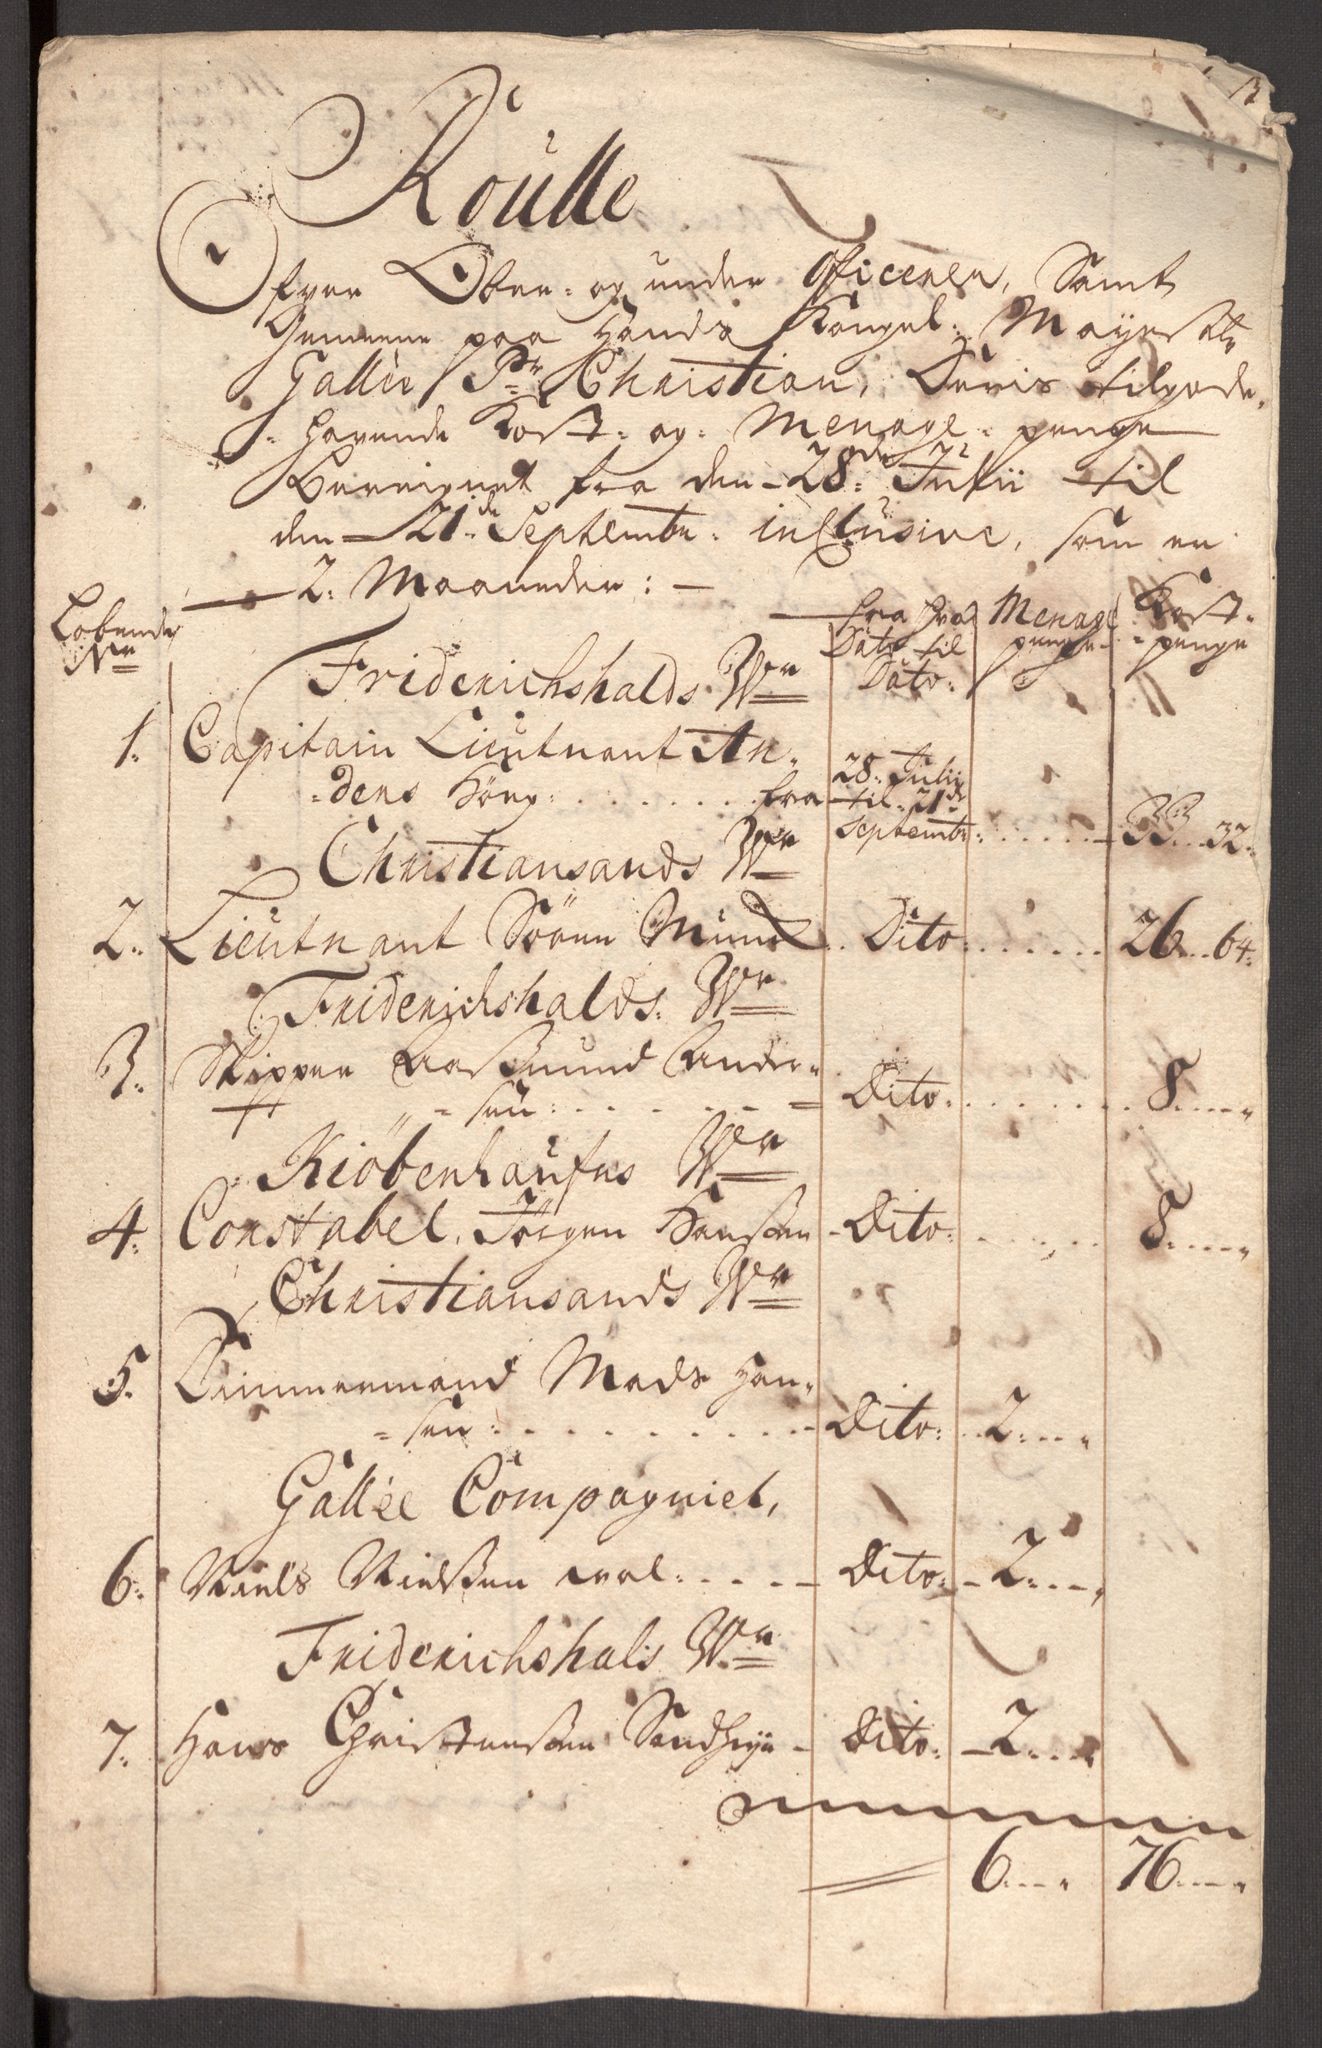 Roulle
Ofver Ober- og under Officerer, Samt
Gemeene paa Hands Kongel: Mayestts
Gallèe Pr Christian, Deris tilgode-
hafvende Kost- og Menage-penge
Bereignet fra den 28de Julii til
den 21de Septembr: inclusive, som er
2: Maaneder:
Löbende Nr
fra hvad Dato til Dato:
Menage penge
Kost-penge
Friderichshalds Wn
1. Capitain Lieutnant An-
dens Höeg: fra 28: Julii til 21de Septembr: 33: 32:
Christiansands Wn
2: Lieutnant Sören Munch Dito 26: 64:
Friderichshalds Wn
3. Skipper Aasmund Ander-
sen: Dito: 8: "
Kiöbenhaufns Wn
4: Constabel Jörgen Hanssen Dito: 8: "
Christiansands Wn
5. Timmermand Mads Han-
sen: Dito: 2: "
Gallèe Compagniet,
6: Niels Nielssen Dito: 2: "
Friderichshals Wn
7: Hans Christenssen Dito: 2: "
6: " 76: "